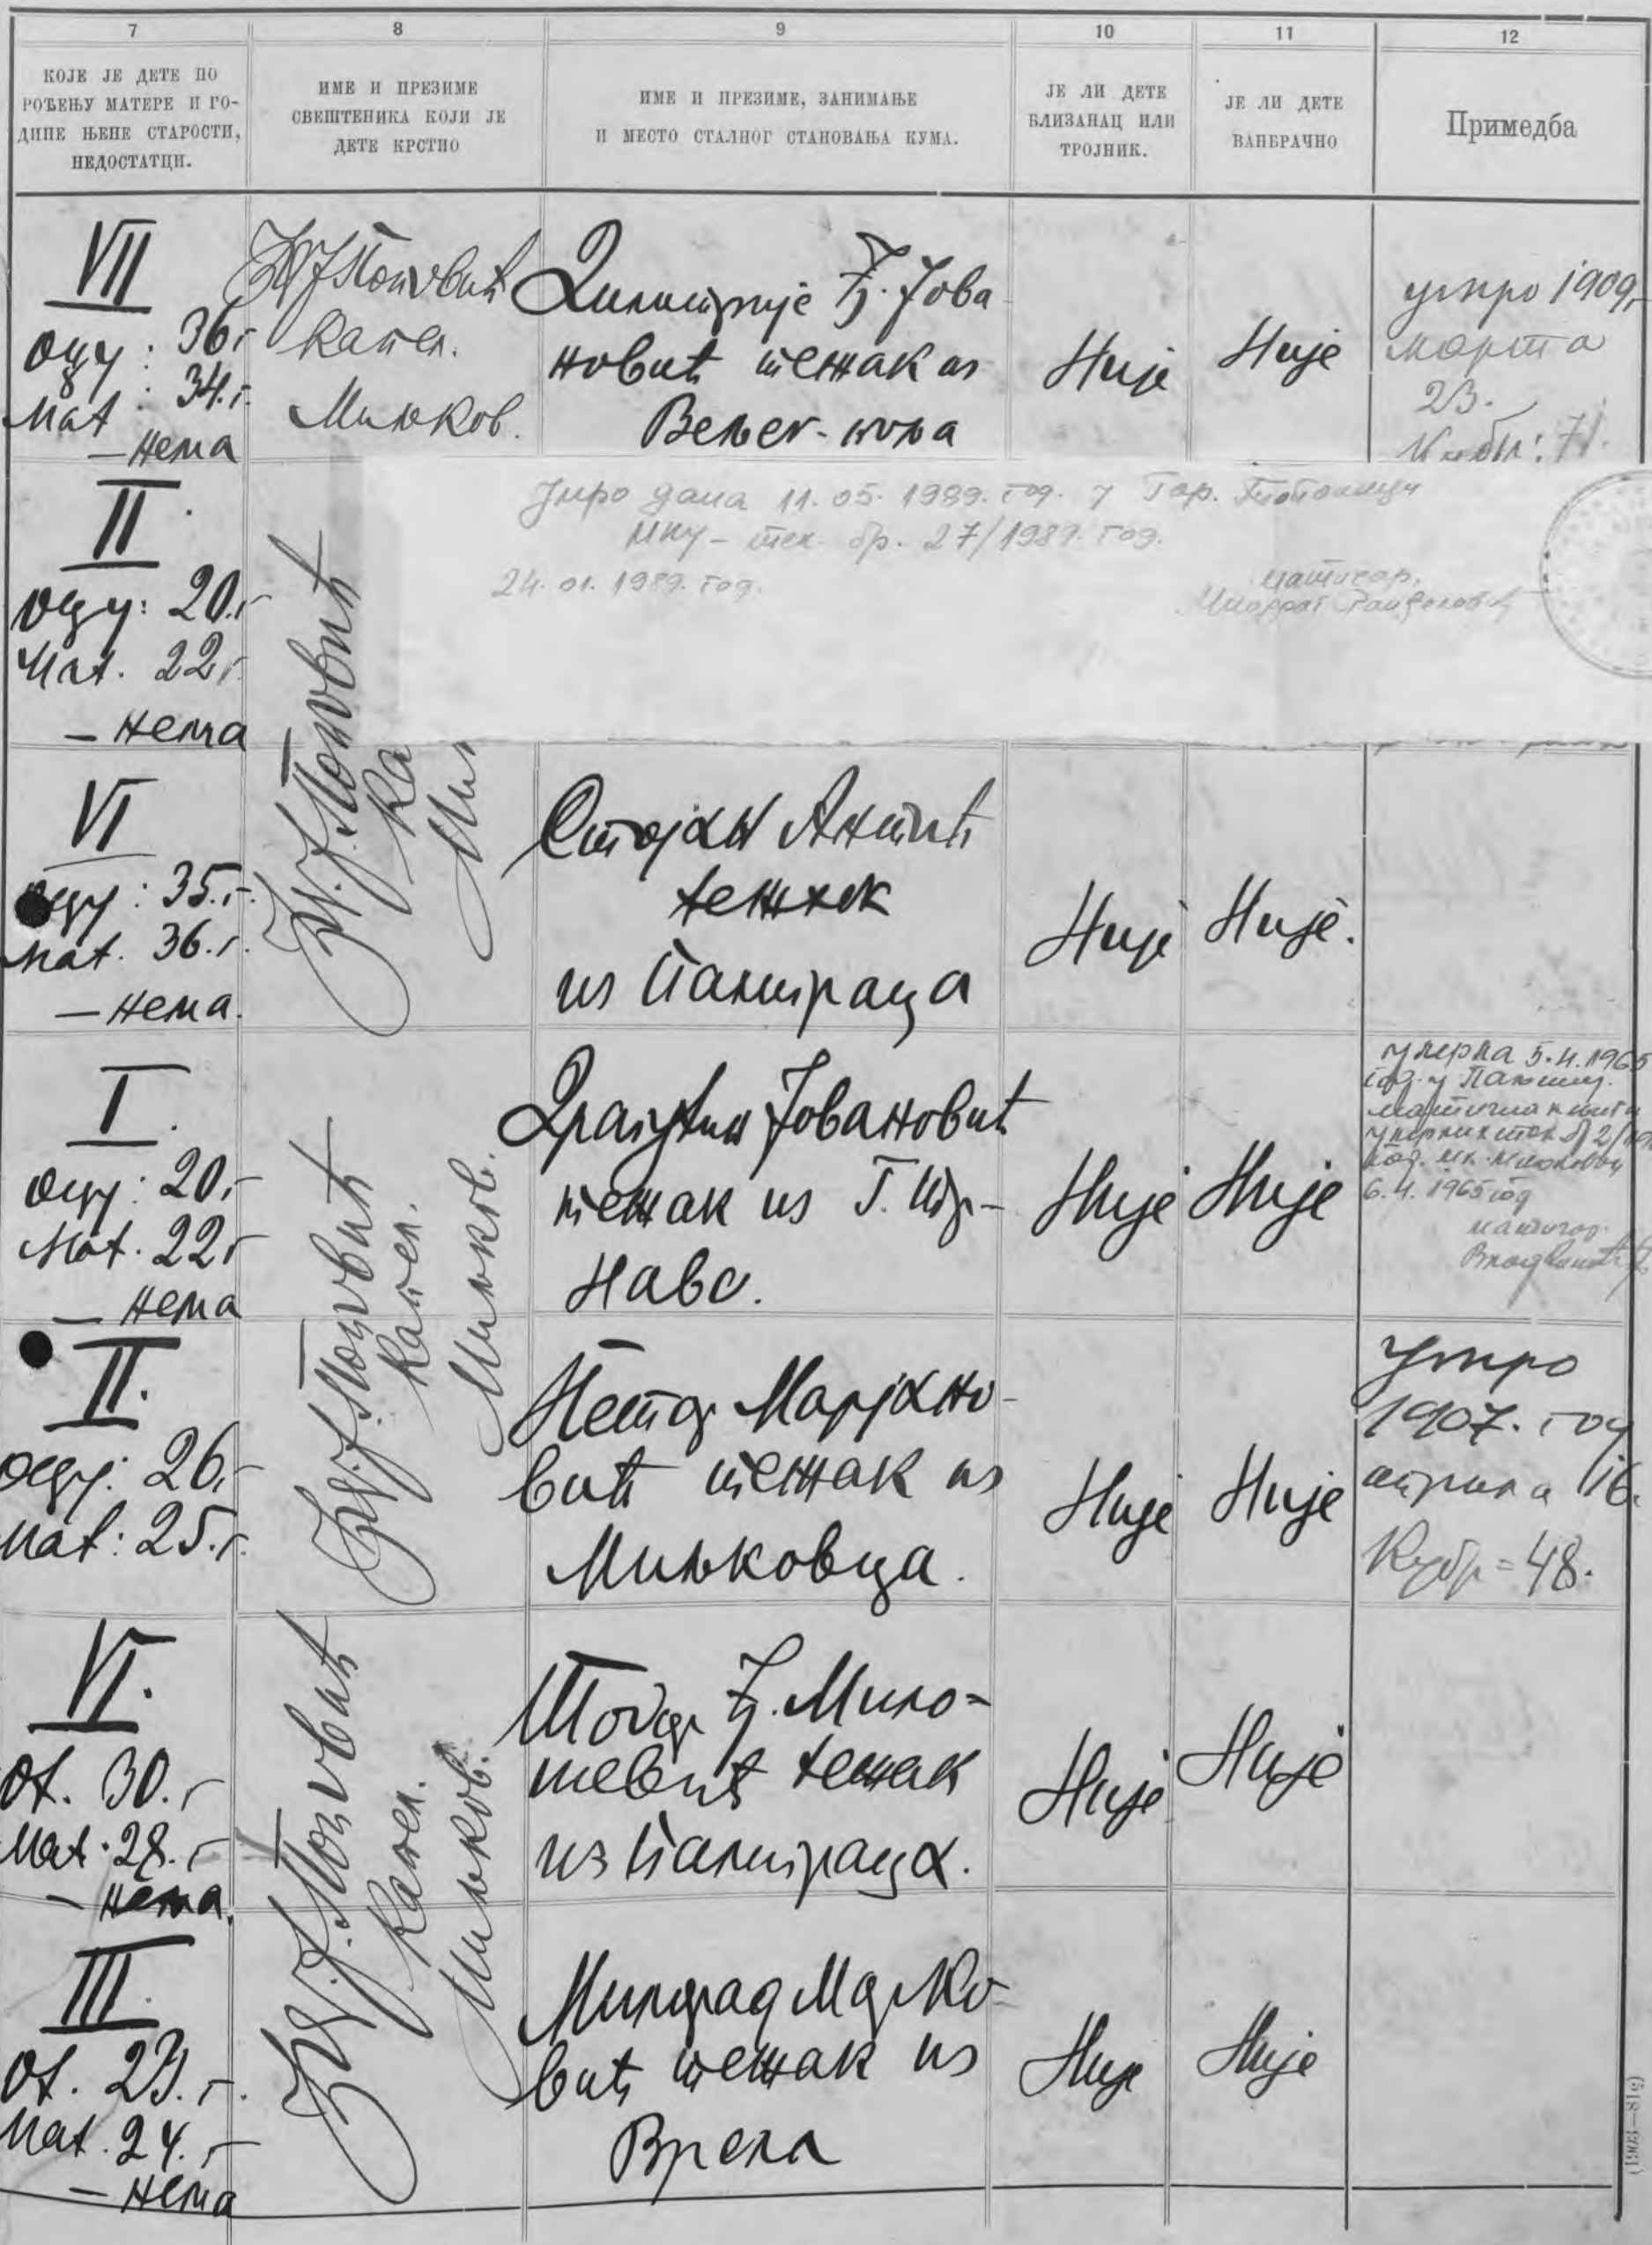 7
8
9
10
11
12
КОЈЕ ЈЕ ДЕТЕ ПО
РОЂЕЊУ МАТЕРЕ И ГО-
ДИНЕ ЊЕНЕ СТАРОСТИ,
НЕДОСТАТЦИ.
ИМЕ И ПРЕЗИМЕ
СВЕШТЕНИКА КОЈИ ЈЕ
ДЕТЕ КРСТИО
ИМЕ И ПРЕЗИМЕ, ЗАНИМАЊЕ
И МЕСТО СТАЛНОГ СТАНОВАЊА КУМА.
ЈЕ ЛИ ДЕТЕ
БЛИЗАНАЦ ИЛИ
ТРОЈНИК.
ЈЕ ЛИ ДЕТЕ
ВАНБРАЧНО
Примедба
VII
оцу: 36 г
Мат: 34. г.
– Нема
Поповић
капел.
Миљков.
Димитрије Ђ. Јова
новић тежак из
Није
Није
умро 1909 г
марта
23.
71.
II
оцу: 20. г
Мат. 22 г.
– Нема
Ј. Поповић
Умро дана 11.05.1989. год. у Гор.
МКУ – тек. бр. 27/1989. год.
24.01.1989. год.
матичар,
VI
оцу: 35. г.
Мат. 36. г.
– Нема.
Стојан Антић
тежак
из Палиграца
Није
Није.
I
оцу: 20. г
Мат. 22 г
– Нема
Ј. Поповић
Капел.
Миљков.
Драгутин Јовановић
тежак из Г.
Није
Није
умрла 5.4.1965
год. у
матична књига
6.4.1965 год
матичар.
II.
оцу: 26. г
Мат: 25. г.
Петар Марјано-
вић тежак из
Миљковца.
Није
Није
Умро
1907. год
априла 16.
48.
VI.
От. 30. г
Мат. 28. г
– Нема.
Ј. Поповић
Капел.
Миљков.
Тодор Ђ. Мило-
шевић тежак
из Палиграца.
Није
Није
III.
От. 23. г.
Мат. 24. г
– Нема
Милорад Марко-
вић тежак из
Врела
Није
Није